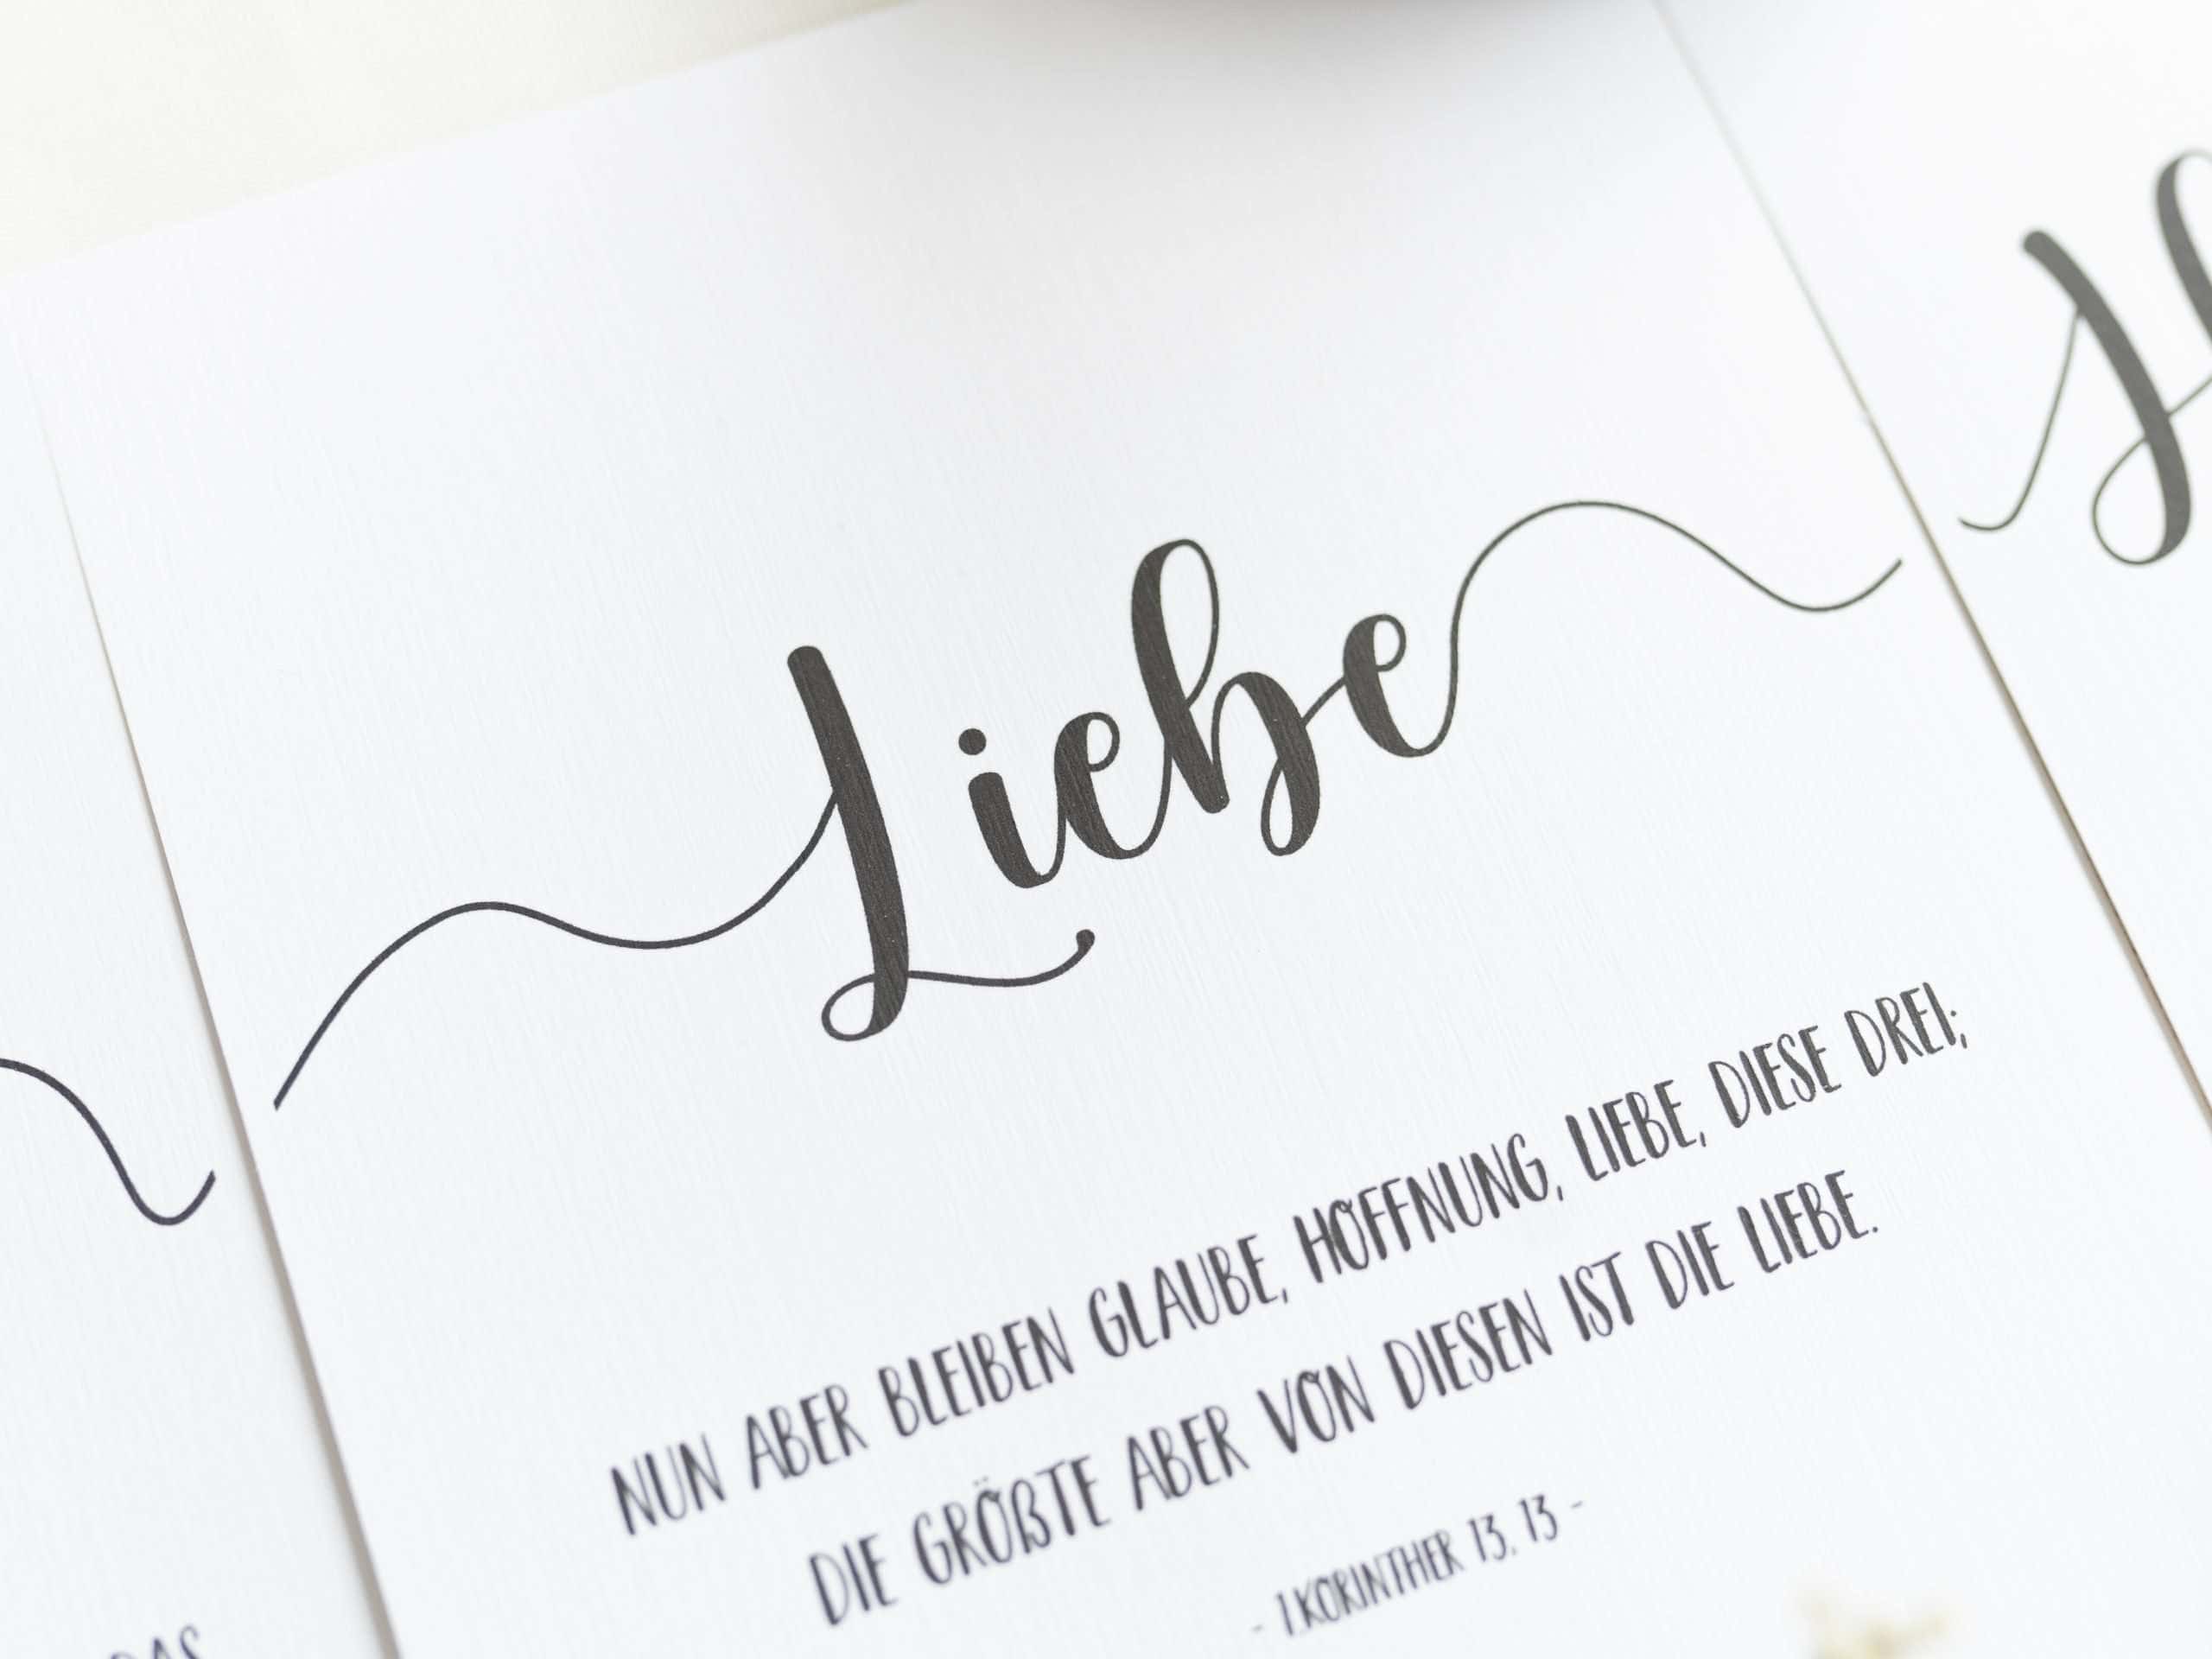 Liebe
NUN ABER BLEIBEN GLAUBE, HOFFNUNG, LIEBE, DIESE DREI;
DIE GRÖßTE ABER VON DIESEN IST DIE LIEBE.
- 1.KORINTHER 13, 13 -
DAS
H